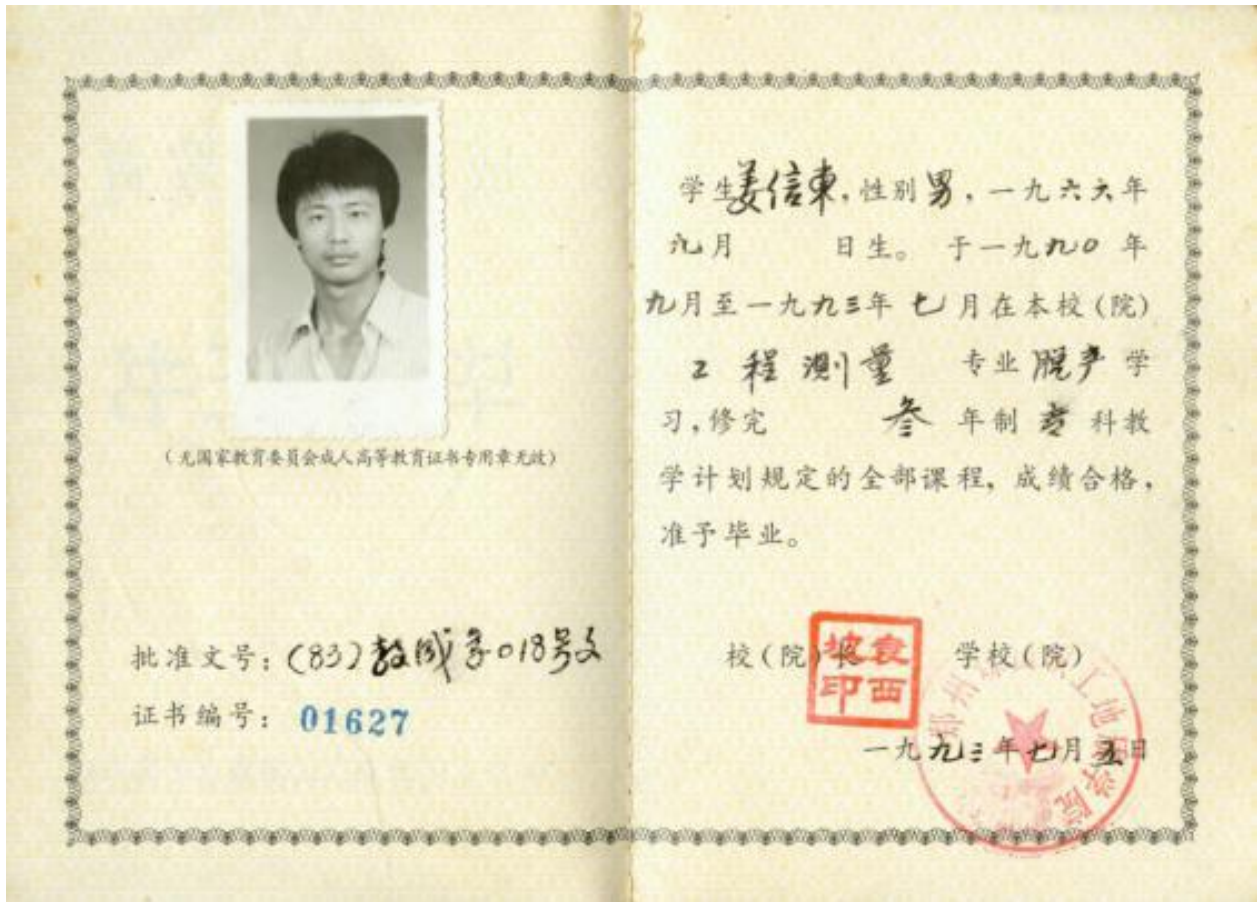 （无国家教育委员会成人高等教育证书专用章无效）
批准文号：(83)教成字018号文
证书编号：01627
学生姜信東，性别男，一九六六年
九月　日生。于一九九0年
九月至一九九三年七月在本校（院）
工程测量 专业脱产学
习，修完 叁年制专科教
学计划规定的全部课程，成绩合格，
准予毕业。
校（院）长 学校（院）
袁西坡印
一九九三年七月五日